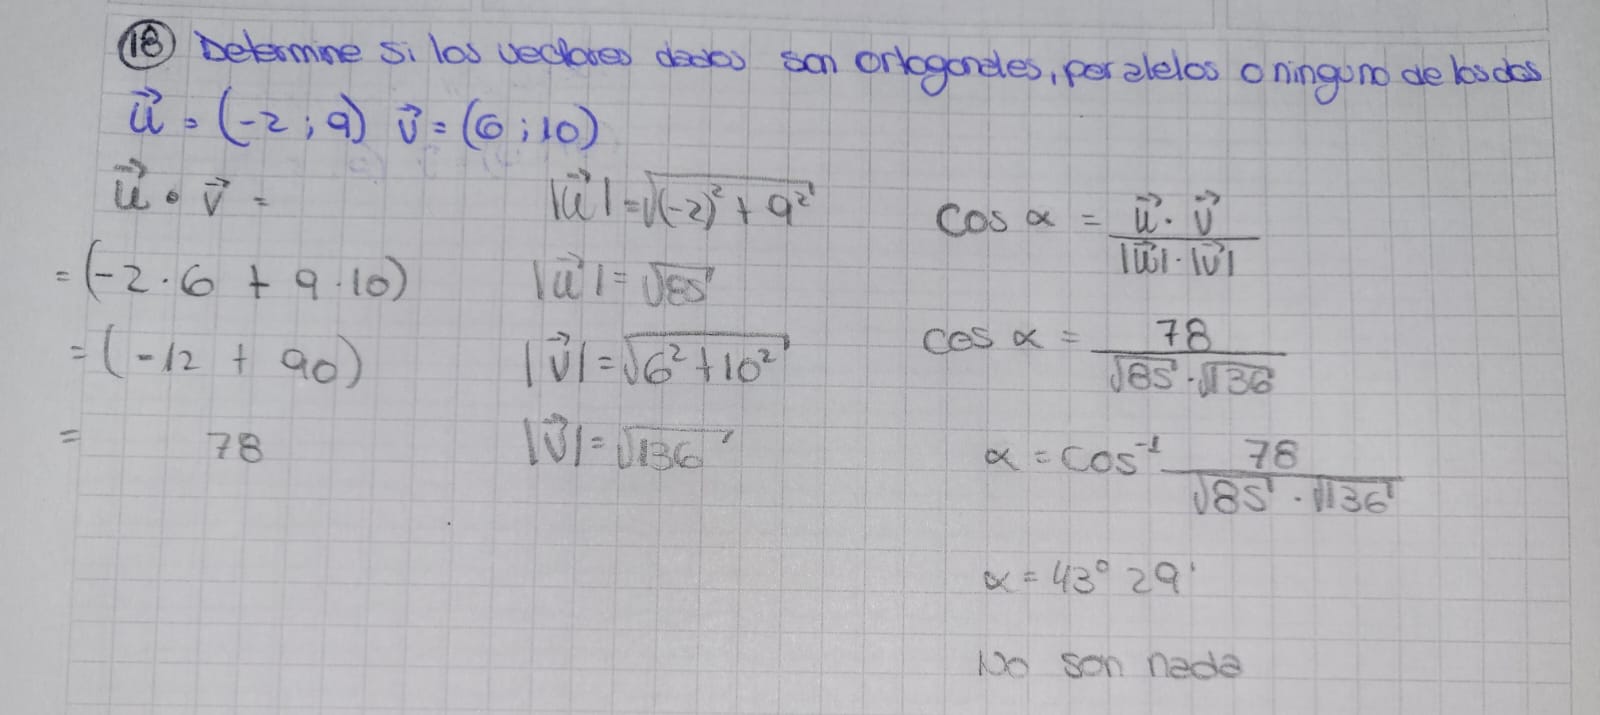 18 Determine si los vectores dados son ortogonales, paralelos o ninguno de los dos
u⃗ = (-2 ; 9) v⃗ = (6 ; 10)
u⃗ • v⃗ =
= (-2 · 6 + 9 · 10)
= (-12 + 90)
= 78
|u⃗| = √((-2)² + 9²)
|u⃗| = √85
|v⃗| = √(6² + 10²)
|v⃗| = √136
cos α = u⃗ · v⃗ / |u⃗| · |v⃗|
cos α = 78 / √85 · √136
α = cos⁻¹ 78 / √85 · √136
α = 43° 29'
No son nada